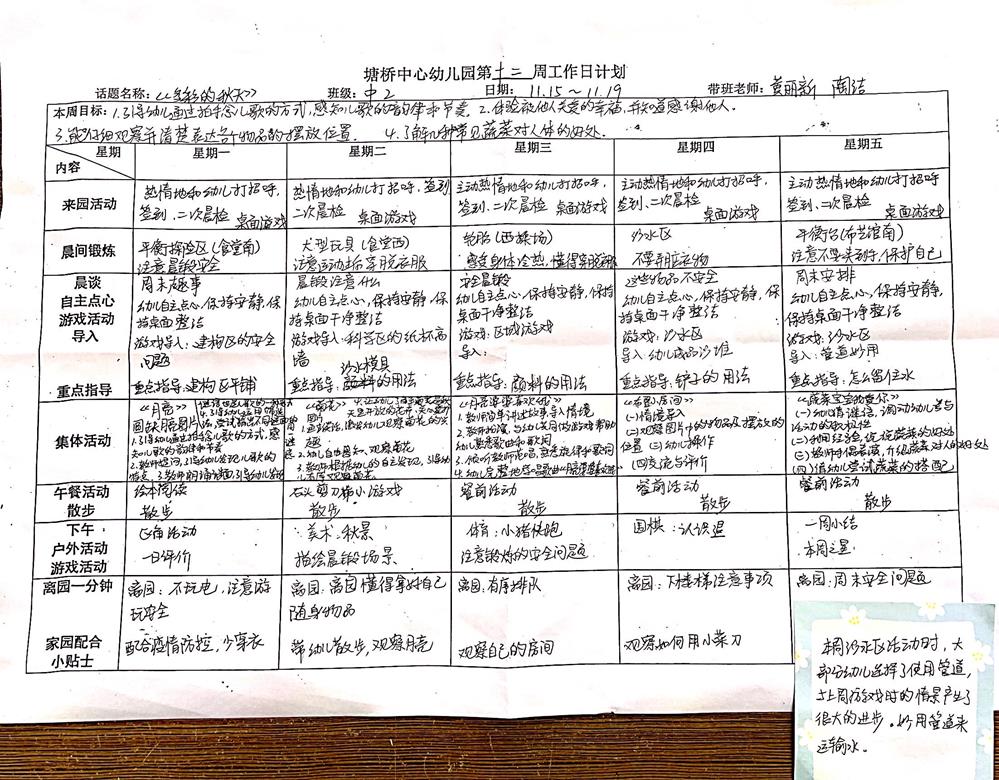 塘桥中心幼儿园第十二周工作日计划
话题名称：《多彩的秋天》 班级：中2 日期：11.15～11.19 带班老师：黄丽新 周洁
本周目标：1.引导幼儿通过拍手念儿歌的方式，感知儿歌的韵律和节奏。2.体验被他人关爱的幸福，并知道感谢他人。
3.能仔细观察并清楚表达各个物品的摆放位置。 4.了解几种常见蔬菜对人体的好处。
星期 内容 星期一 星期二 星期三 星期四 星期五
来园活动
热情地和幼儿打招呼，
签到、二次晨检 桌面游戏
热情地和幼儿打招呼，签到
二次晨检 桌面游戏
主动热情地和幼儿打招呼，
签到、二次晨检 桌面游戏
主动热情地和幼儿打招呼，
签到、二次晨检 桌面游戏
主动热情地和幼儿打招呼，
签到、二次晨检 桌面游戏
晨间锻炼
平衡探险区（食堂南）
注意晨锻安全
大型玩具（食堂西）
注意运动过后穿脱衣服
轮胎（西操场）
感受身体冷热，懂得穿脱
沙水区
不要弄脏衣物
平衡台（布艺馆南）
注意不要打，保护自己
晨谈
自主点心
游戏活动
导入
重点指导
周末趣事
幼儿自主点心，保持安静，保
持桌面整洁
游戏导入：建构区的安全
问题
重点指导：建构区平铺
晨锻注意什么
幼儿自主点心，保持安静，保
持桌面干净整洁
游戏导入：科学区的纸杯高
墙 沙水模具
重点指导：颜料的用法
安全晨锻
幼儿自主点心，保持安静，保持
桌面干净整洁
游戏：区域游戏
导入：
重点指导：颜料的用法
这些物品不安全
幼儿自主点心，保持安静，保
持桌面干净整洁
游戏：沙水区
导入：幼儿成品沙堆
重点指导：铲子的用法
周末安排
幼儿自主点心，保持安静，
保持桌面干净整洁
游戏：沙水区
导入：管道妙用
重点指导：怎么留住水
集体活动
《月亮》
1.引导幼儿通过拍手念儿歌的方式，感
知儿歌的韵律和节奏
《菊花》
2.幼儿自由感知、观察菊花
1.教师简单讲述故事导入情境
3.倾听教师范唱，熟悉旋律和歌词
《布置小房间》
（一）情境导入
（二）观察图片中的物品及摆放的
位置 （三）幼儿操作
（四）交流与评价
（一）幼儿猜谜语，调动幼儿参与
活动的积极性
（四）请幼儿尝试蔬菜的搭配
午餐活动
散步
绘本阅读
散步
石头剪刀布小游戏
散步
餐前活动
散步
餐前活动
散步
餐前活动
散步
下午
户外活动
游戏活动
区角活动
一日评价
美术：秋景
描绘晨锻场景
体育：小猪快跑
注意锻炼的安全问题
围棋：认识
一周小结
本周之星
离园一分钟
离园：不玩电，注意游
玩安全
离园：离园懂得拿好自己
随身物品
离园：有序排队
离园：下楼梯注意事项
离园：周末安全问题
家园配合
小贴士
配合疫情防控，少穿衣
带幼儿散步，观察月亮
观察自己的房间
观察如何用小菜刀
本周沙水区活动时，大
部分幼儿选择了使用管道，
与上周游戏时的情景产生了
很大的进步。妙用管道来
运输水。